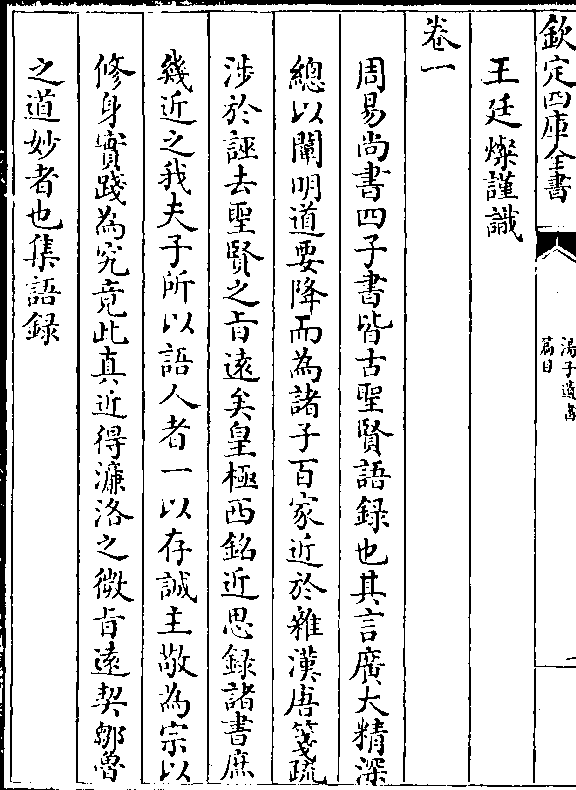 欽定四庫全書
湯子遺書
篇目
王廷燦謹識
卷一
周易尚書四子書皆古聖賢語録也其言廣大精深
總以闡明道要降而為諸子百家近於雜漢唐箋疏
涉於誣去聖賢之㫖逺矣皇極西銘近思録諸書庶
幾近之我夫子所以語人者一以存誠主敬為宗以
修身實踐為究竟此真近得濂洛之微㫖逺契鄒魯
之道妙者也集語録